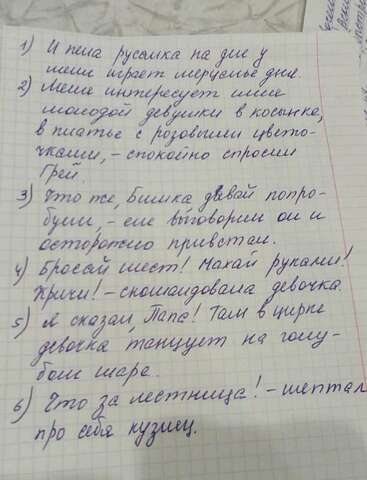 1) И пела русалка на дне у
меня играет мерцанье дня.
2) Меня интересует имя
молодой девушки в косынке,
в платье с розовыми цвето-
чками, - спокойно спросил
Грей.
3) Что же, Бимка давай попро-
буем, - еле выговорил он и
осторожно привстал.
4) Бросай шест! Махай руками!
Кричи! - скомандовала девочка.
5) А сказал, Папа! Там в цирке
девочка, танцует на голу-
бом шаре.
6) Что за лестница! - шептал
про себя кузнец.